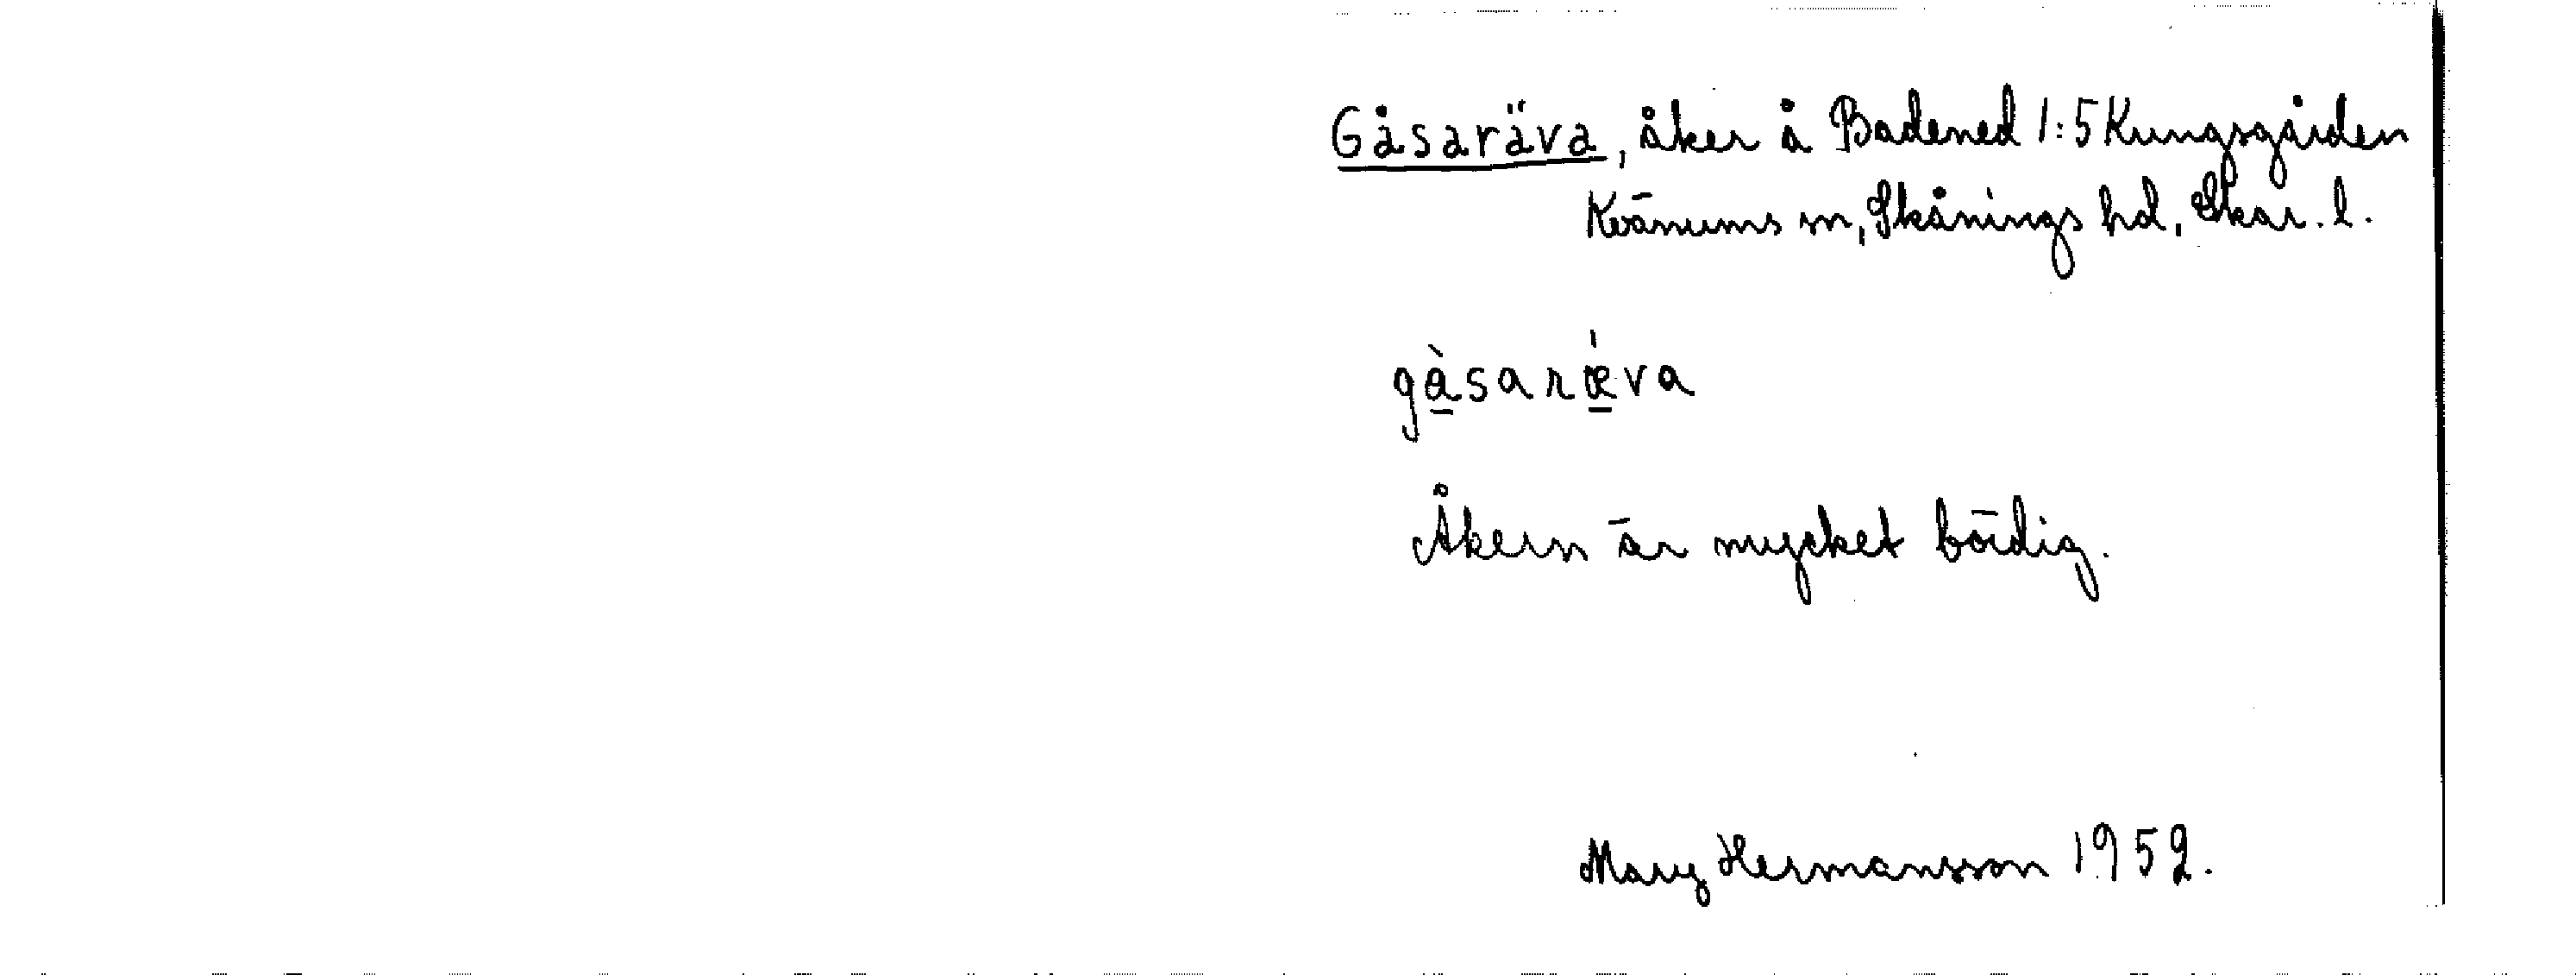 Gåsaräva, åker å Badened 1:5 Kungsgården
Kvänums sn, Skånings hd, Skar. l.
gàsarǽva
Åkern är mycket bördig.
Mary Hermansson 1952.